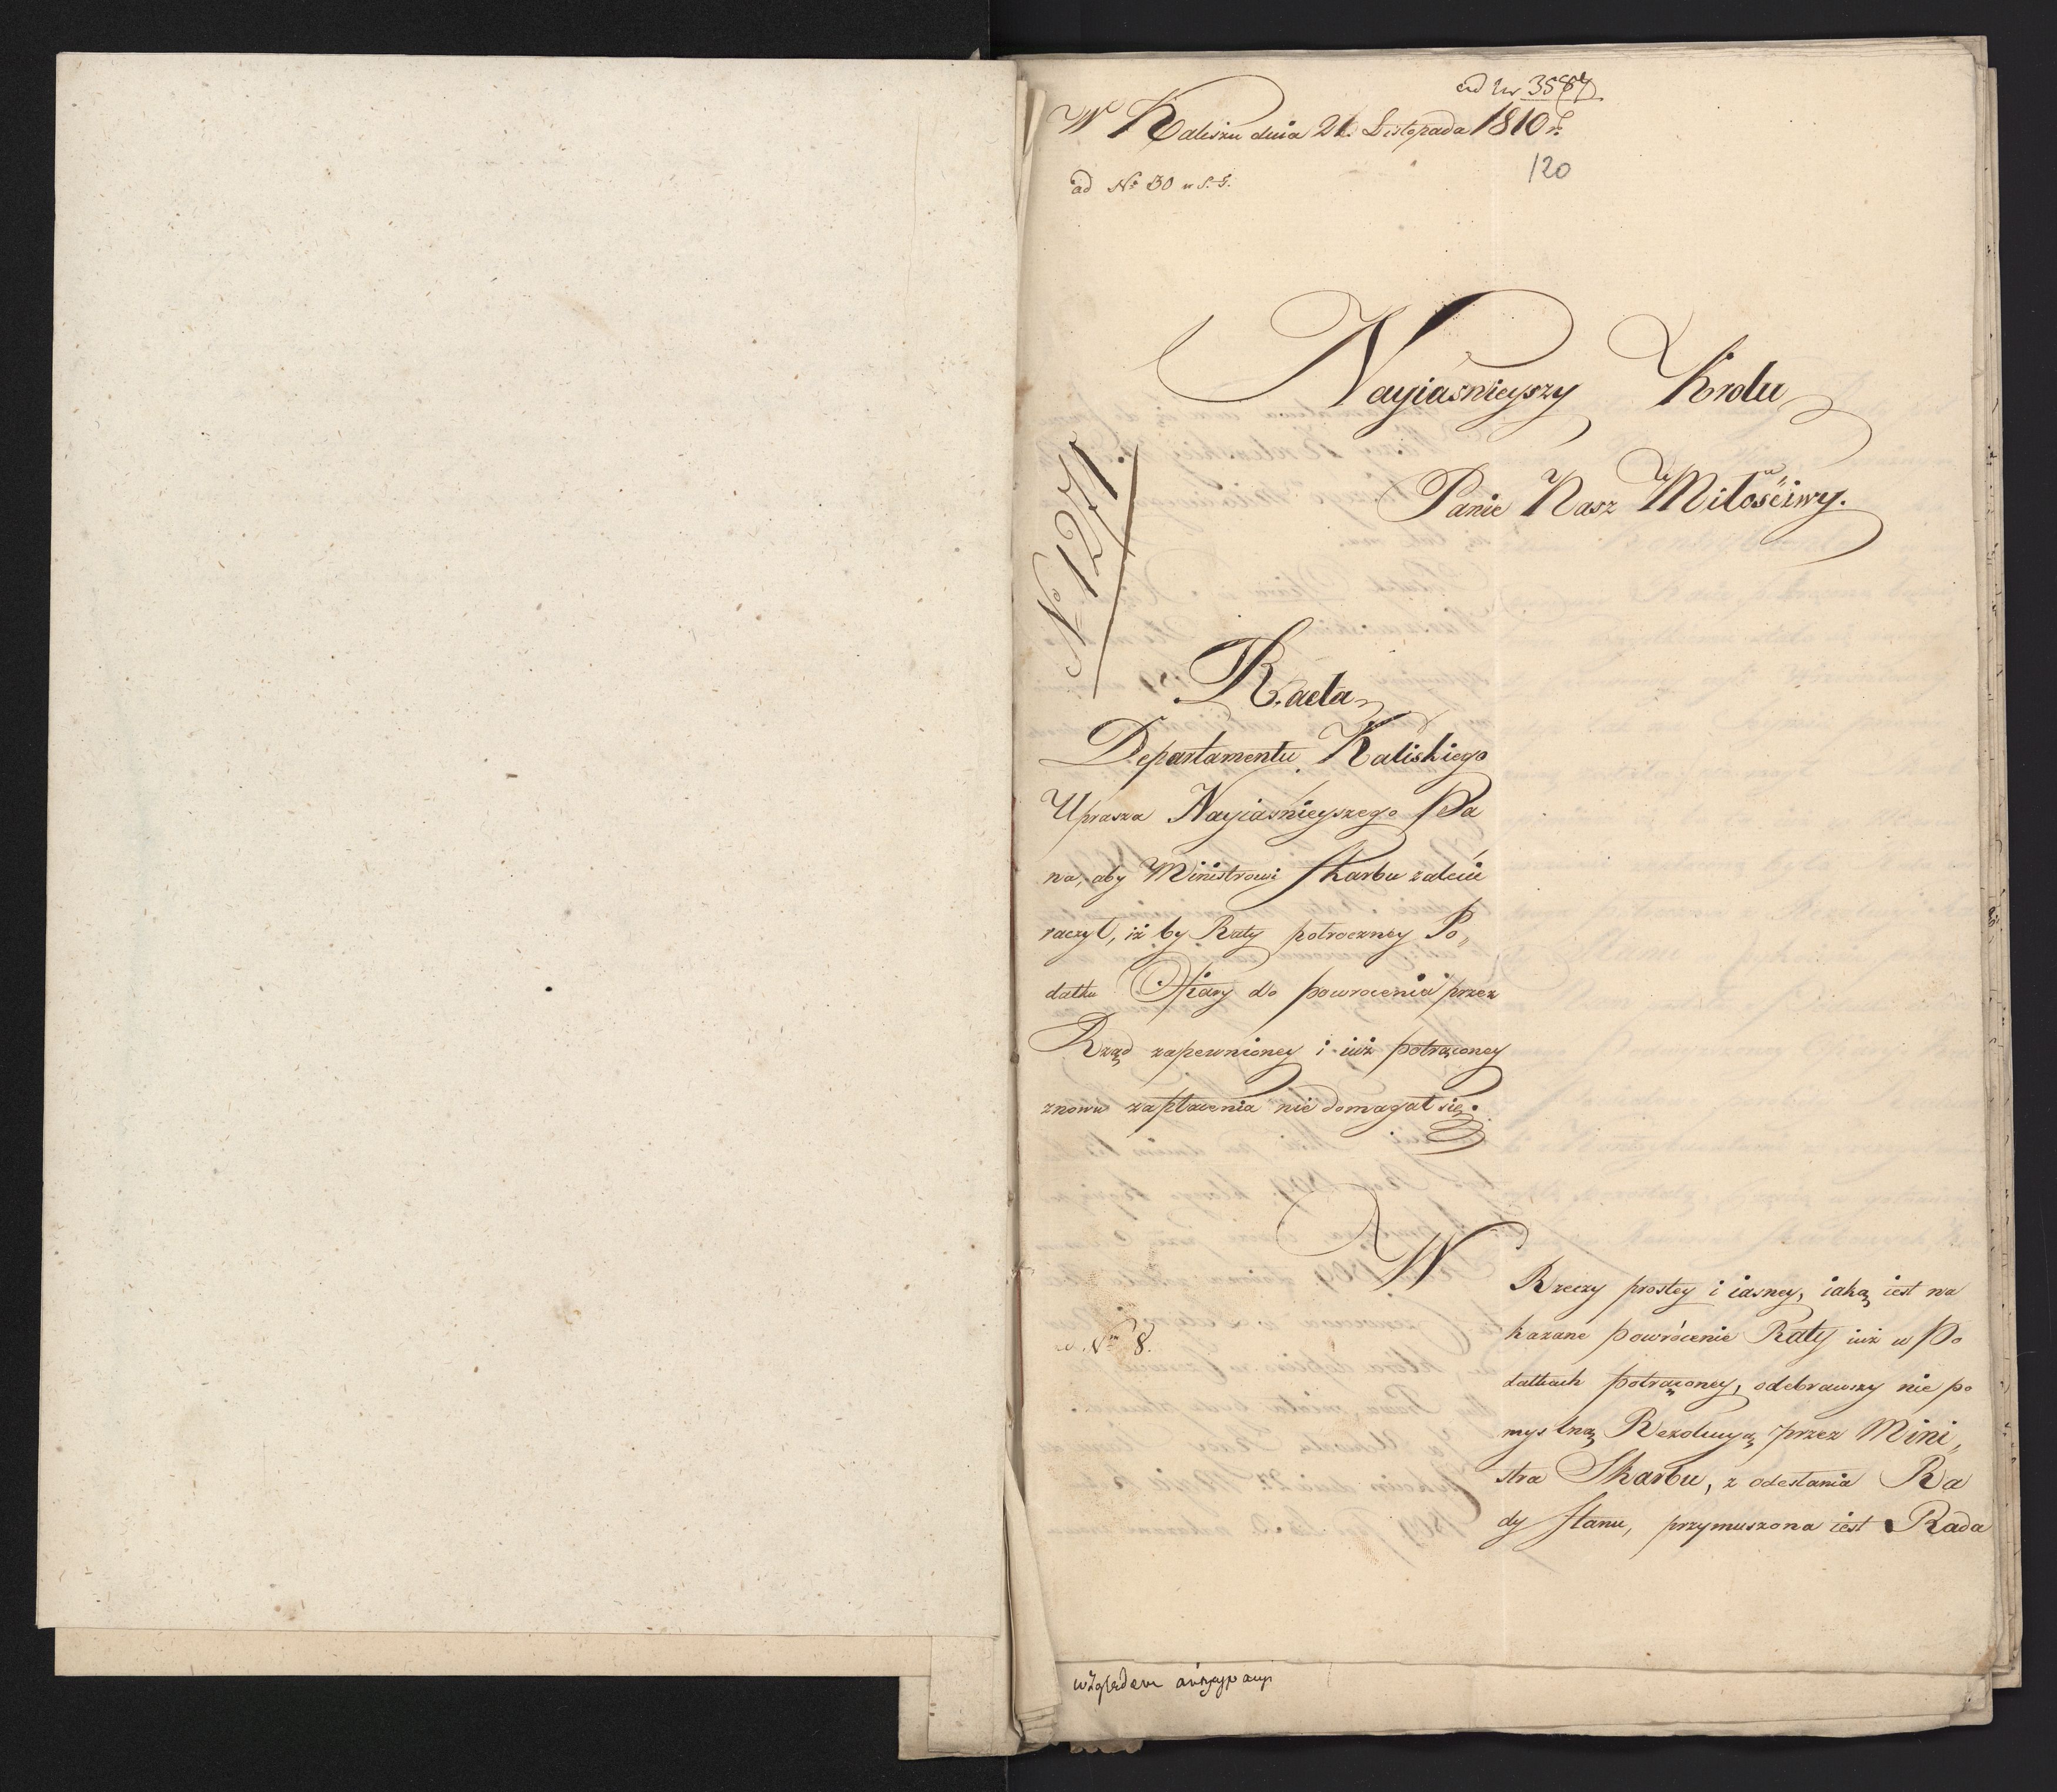 ad Nr 3587
W Kaliszu dnia 21. Listopada 1810 r.
120
ad Nº 30
Nayiaśnieyszy Krolu
Panie Nasz Miłościwy.
Nº 1271.
Rada
Departamentu Kaliskiego
Uprasza Nayiaśnieyszego Pa
na, aby Ministrowi Skarbu zalecić
raczył, iż by Raty połroczney Po„
datku Ofiary do powrocenia przez
Rząd zapewnioney i iuż potrąconey
znowu zapłacenia nie domagał się.
W Rzeczy prostey i iasney, iaką iest na
kazane powrócenie Raty iuż w Po
Nr 8.
datkach potrąconey, odebrawszy nie po
myslną Rezolucyą przez Mini„
stra Skarbu, z odesłania Ra
dy Stanu, przymuszona iest Rada
względem